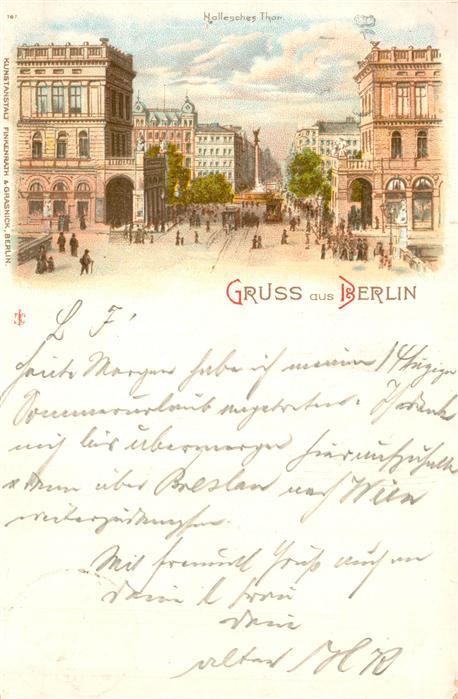 787
Hallesches Thor.
KUNSTANSTALT FINKENRATH & GRASNICK, BERLIN.
GRUSS aus BERLIN
L F!
Heute Morgen habe ich meinen 14 tägigen
Sommerurlaub angetreten. Ich denke
mich bis übermorgen hier aufzuhalten
u dann über Breslau nach Wien
weiterzudampfen.
Mit freundl Gruß auch an
Deine l Frau
Dein
alter